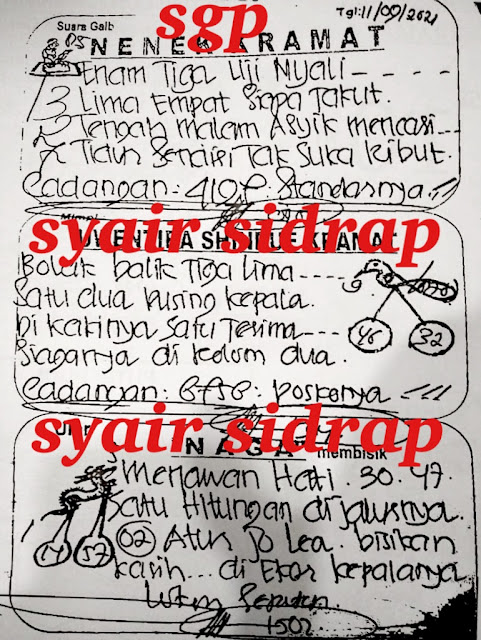 sgp
Tgl:11/09/2021
Suara Gaib
NENEK KARAMAT
05
Enam Tiga Uji Nyali
13 Lima Empat Siapa Takut.
Tengah malam Asyik mencari
7 Tidur Sendiri Tak Suka Ribut.
Cadangan: Standasnya
syair sidrap
Mimpi
KRAMAT
Bolak balik Tiga Lima
Satu dua pusing kepala.
Di kakinya Satu Terima
Siaganya di kolom dua.
46 32
Cadangan: poskonya
syair sidrap
Ular
NAGA membisik
Menawan Hati. 30. 47.
Satu Hitungan di jalurnya.
57
02 Atur bisikan
kasih... di Ekor kepalanya
1502